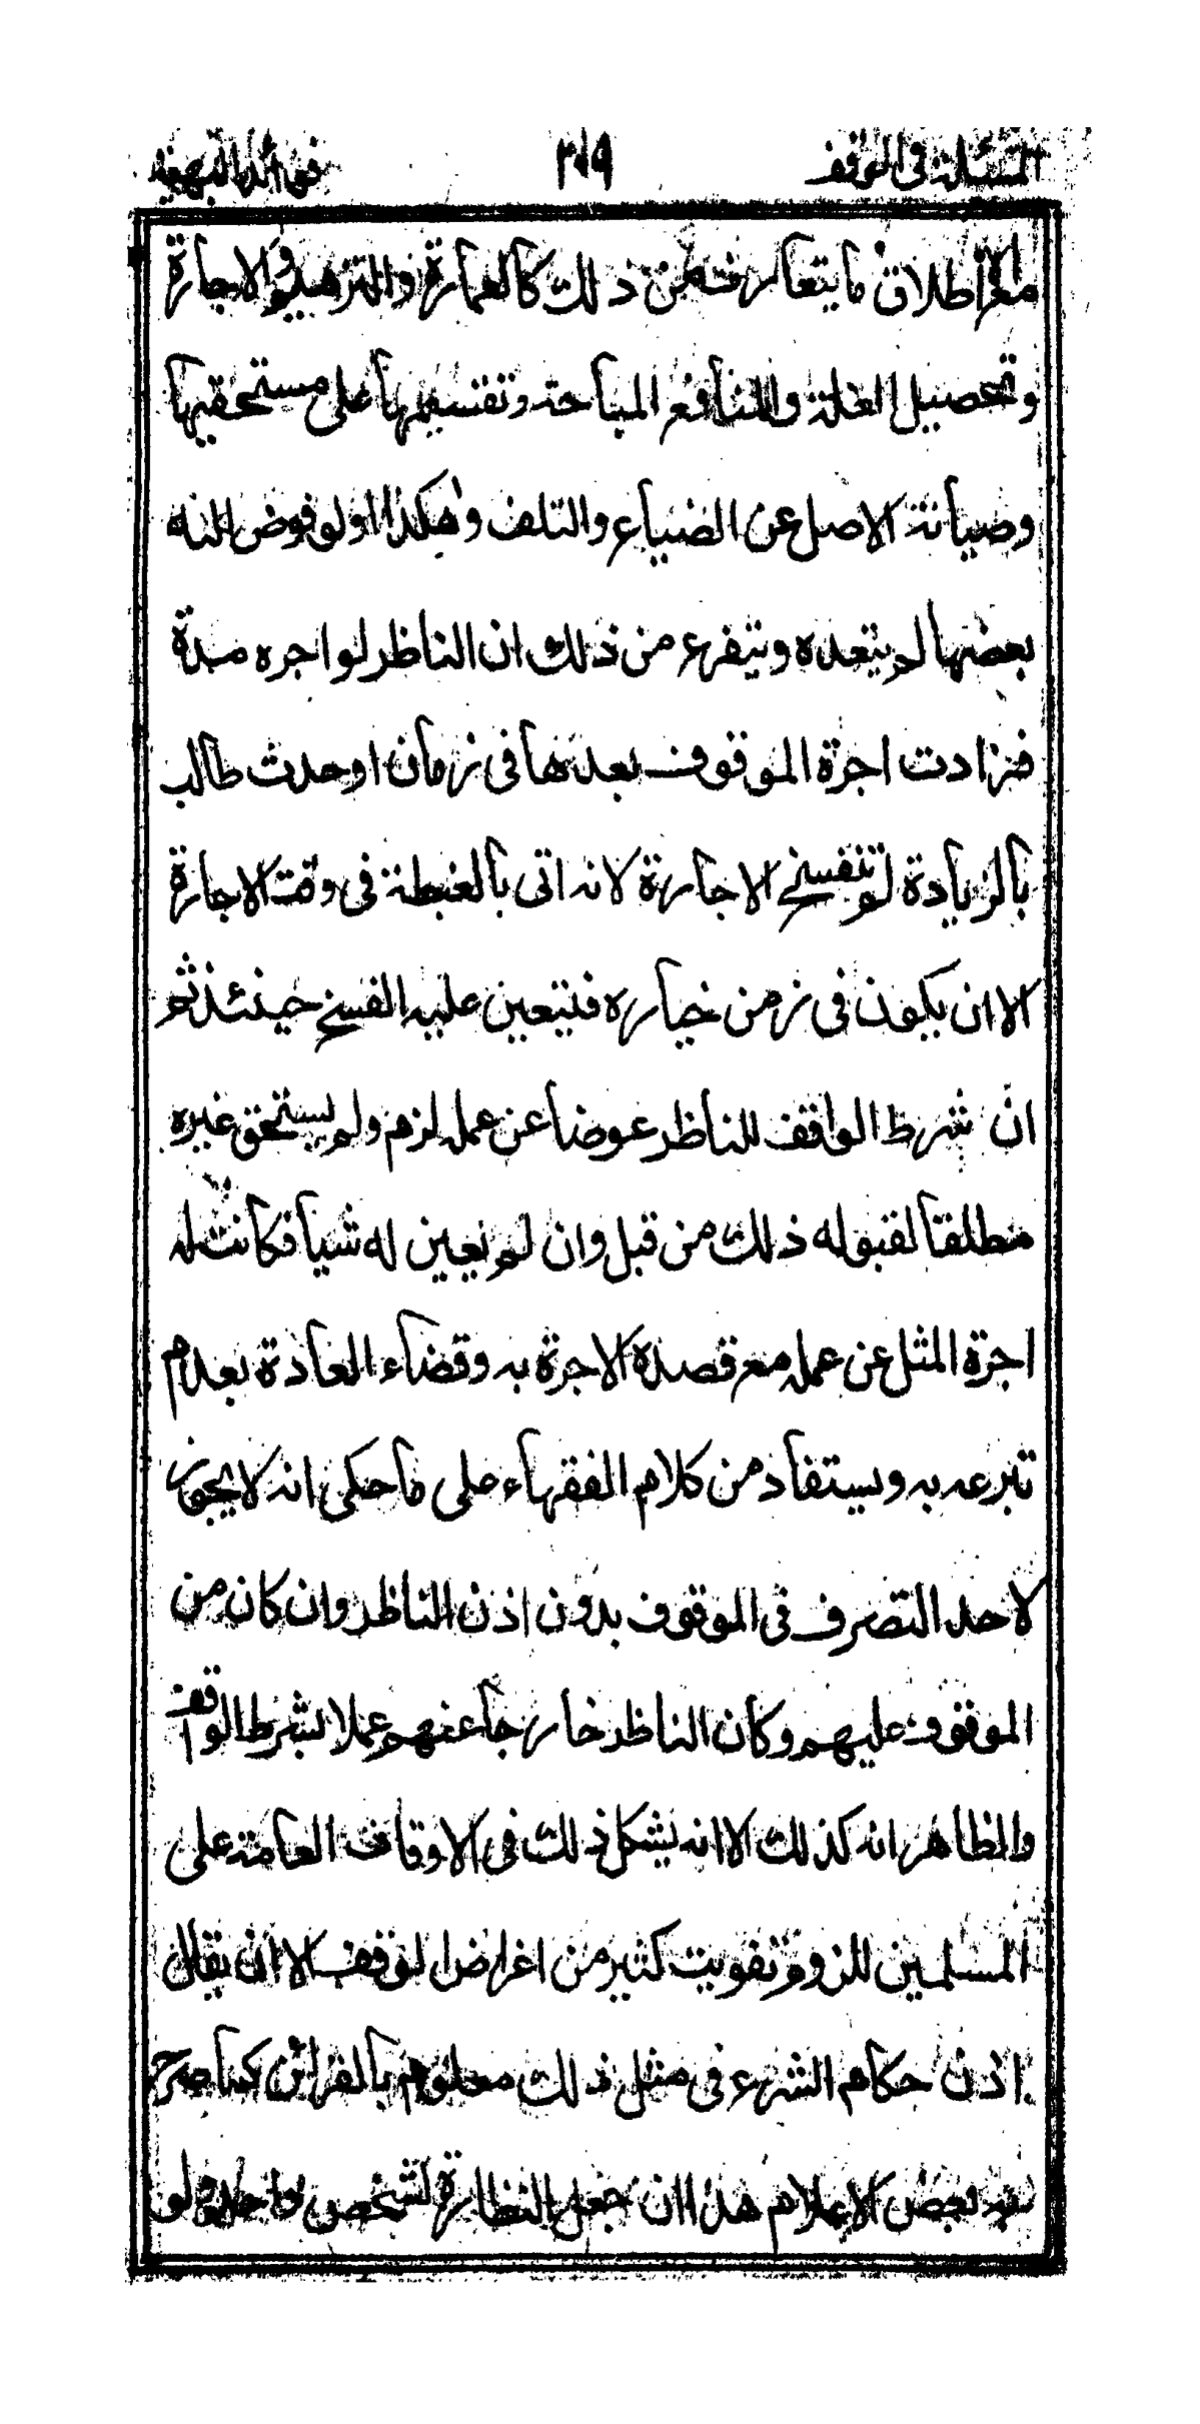 المسئلة فى الوقف ٢٠٩ فوائد البهية
مع اطلاق ما يتعارفه من ذلك كالعمارة والترهيم والاجارة
وتحصيل الغلة والمنافع المباحة وتقسيمها على مستحقيها
وصيانة الاصل عن الضياع والتلف وهكذا اولو فوض اليه
بعضها لم يتعده ويتفرع من ذلك ان الناظر لو اجره مدة
فزادت اجرة الموقوف بعدها فى زمان او حدث طالب
بالزيادة لم تنفسخ الاجارة لانه اتى بالغبطة فى وقت الاجارة
الا ان يكون فى زمن خياره فيتعين عليه الفسخ حينئذ ثم
ان شرط الواقف للناظر عوضا عن عمل لزم ولم يستحق غيره
مطلقا لقبوله ذلك من قبل وان لم يعين له شيأ فكانت له
اجرة المثل عن عمله مع قصده الاجرة به وقضاء العادة بعدم
تبرعه به ويستفاد من كلام الفقهاء على ما حكى انه لا يجوز
لاحد التصرف فى الموقوف بدون اذن الناظر وان كان من
الموقوف عليهم وكان الناظر خارجا عنهم عملا بشرط الواقف
والظاهر انه كذلك الا انه يشكل ذلك فى الاوقاف العامة على
المسلمين للزوم تفويت كثير من اغراض الوقف الا ان يقال
اذن حكام الشرع فى مثل ذلك معلوم بالقرائن كما صرح
به بعض الاعلام هذا ان جعل النظارة لشخص واحد ولو